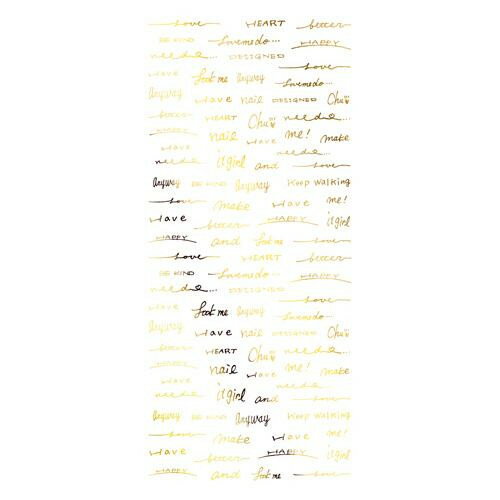 Love HEART better
BE KIND Lovemedo... HAPPY
needle... DESIGNED Love
Have Look me Anyway Lovemedo...
Anyway Have nail DESIGNED Chu
better HEART Chu needle...
HAPPY nail Have me! make
needle Have it girl and Love
Anyway BE KIND Anyway Keep walking
Love make Have me!
Have better HAPPY it girl
HAPPY and Look me better
Love HEART better
BE KIND Lovemedo... HAPPY
needle... DESIGNED Love
Have Look me Anyway Lovemedo...
Anyway Have nail DESIGNED Chu
better HEART Chu needle...
HAPPY nail Have me! make
needle Have it girl and Love
Anyway BE KIND Anyway Keep walking
Love make Have me!
Have better HAPPY it girl
HAPPY and Look me Love